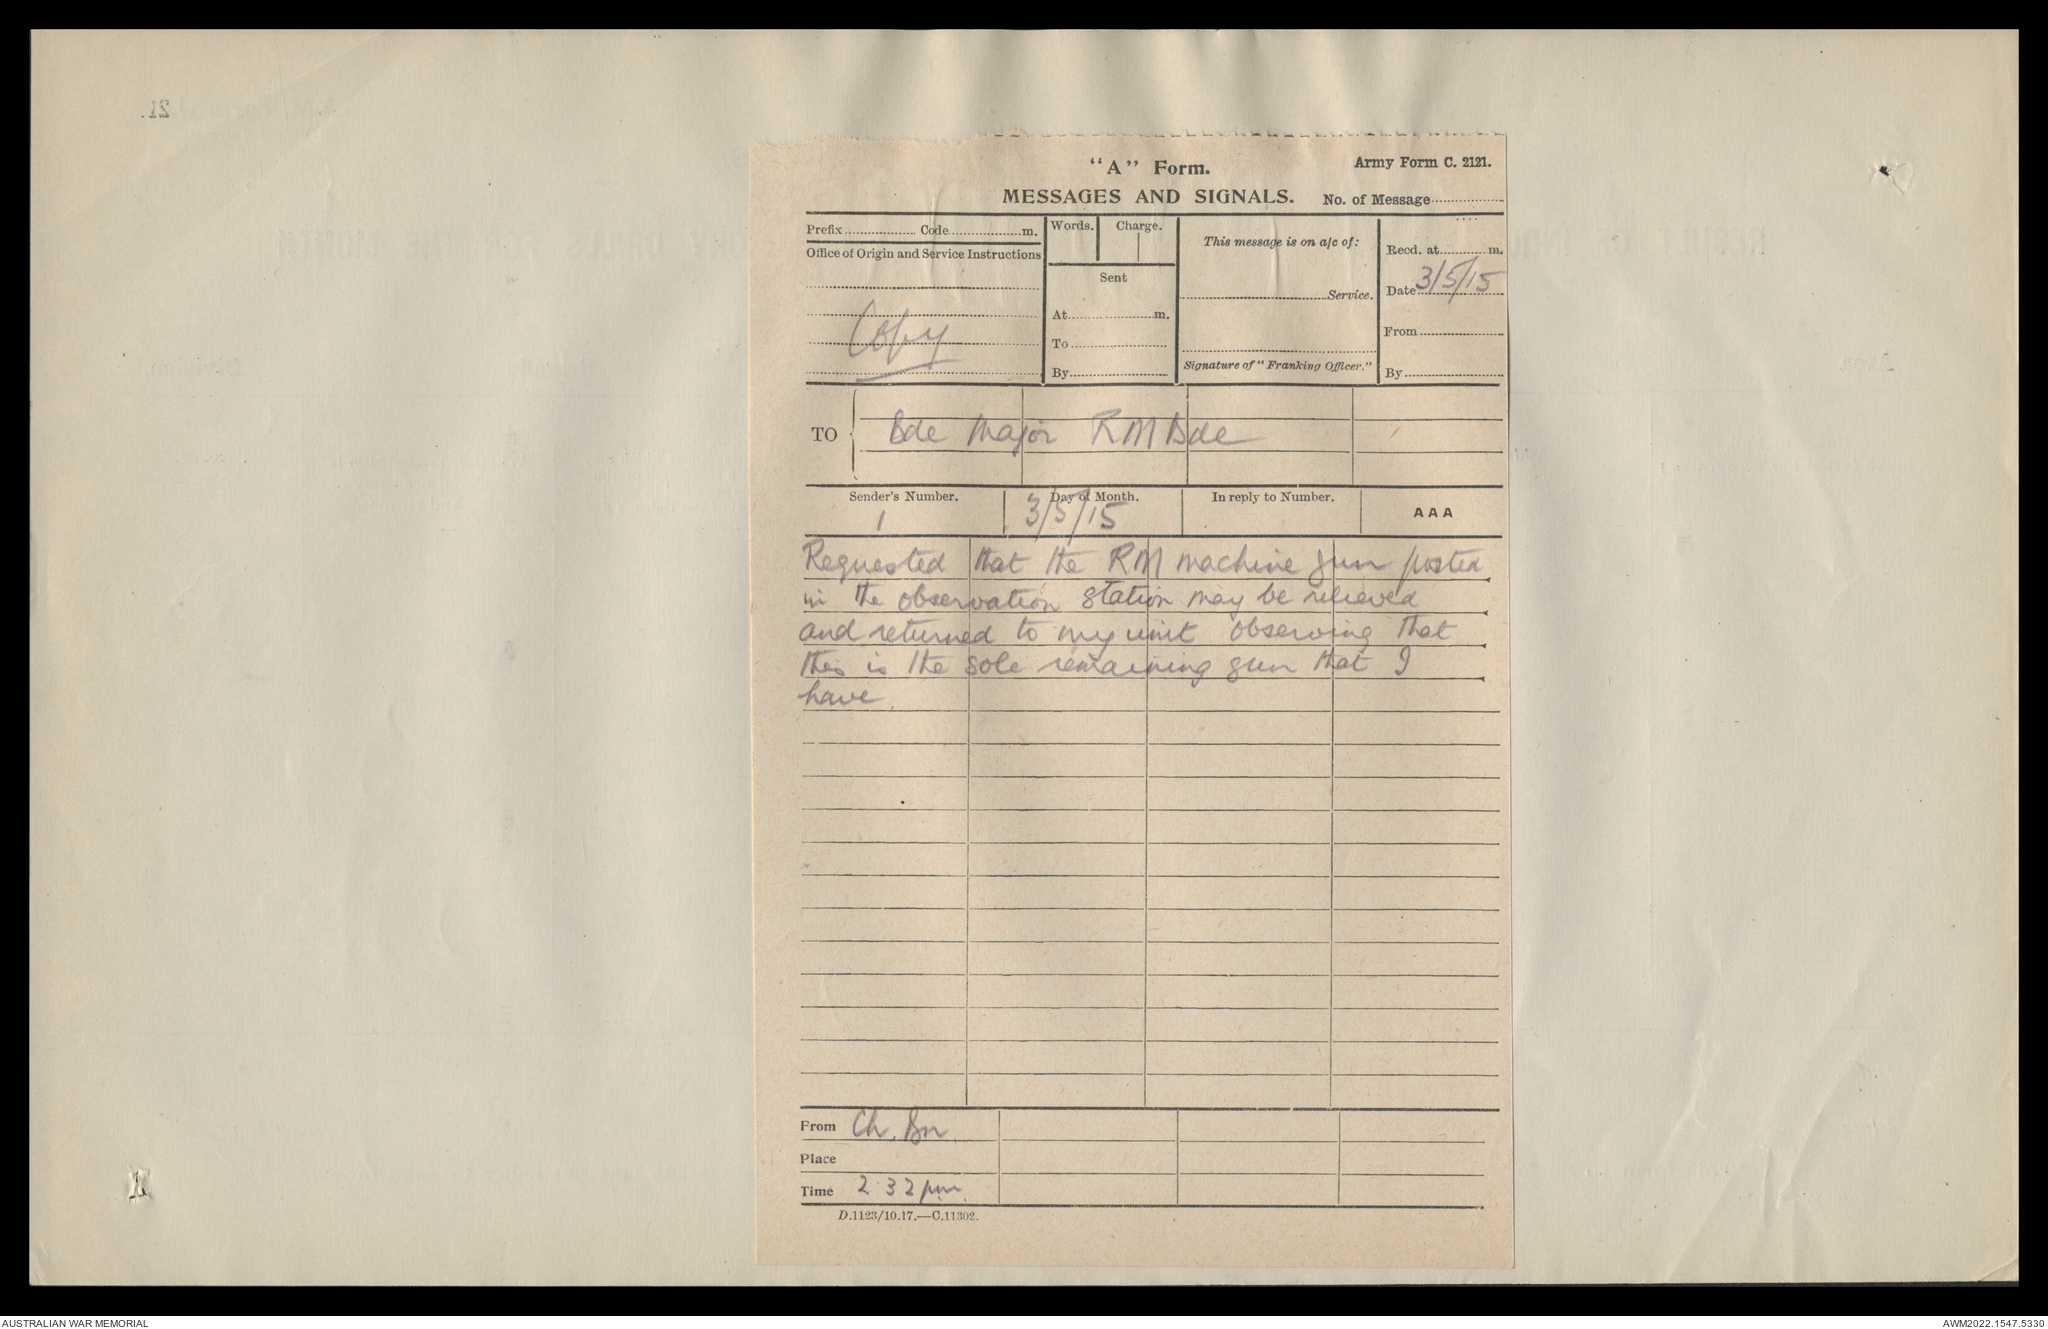 "A" Form.
Army Form C. 2121.
MESSAGES AND SIGNALS.
No. of Message
Prefix Code m.
Words. Charge.
This message is on a/c of:
Recd. at m.
Office of Origin and Service Instructions
Sent
Date 3/5/15
Service.
At m.
Copy
From
To
Signature of "Franking Officer."
By
By
TO Bde Major RM Bde
Sender's Number. Day of Month. In reply to Number. AAA
1 3/5/15
Requested that the RM machine gun posted
in the observation station may be relieved
and returned to my unit observing that
this is the sole remaining gun that I
have.
From Ch. Bn.
Place
Time 2 32 pm.
D.1123/10.17.—C.11302.
21.
Division.
AUSTRALIAN WAR MEMORIAL
AWM2022.1547.5330